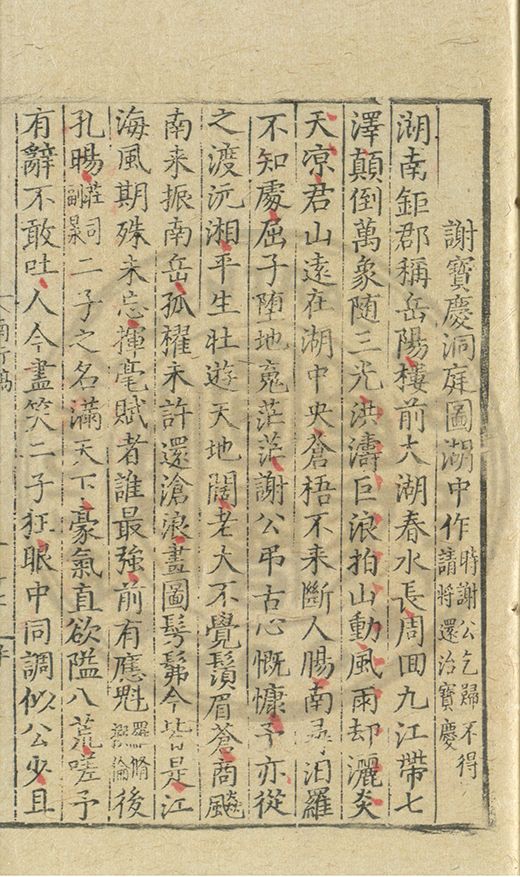 謝寶慶洞庭圖湖中作時謝公乞歸不得請將還治寶慶
湖南鉅郡稱岳陽樓前大湖春水長周回九江帶七
澤顛倒萬象随三光洪濤巨浪拍山動風雨却灑炎
天凉君山遠在湖中央蒼梧不来斷人腸南尋汨羅
不知處屈子堕地䰟茫茫謝公弔古心慨慷予亦從
之渡沅湘平生壯遊天地闊老大不覺鬚眉蒼商飈
南来振南岳孤櫂未許還滄浪畫圖髣髴今皆是江
海風期殊未忘揮毫賦者誰最强前有應魁後
孔暘二子之名滿天下豪氣直欲隘八荒嗟予
有辭不敢吐人今盡笑二子狂眼中同調似公少且